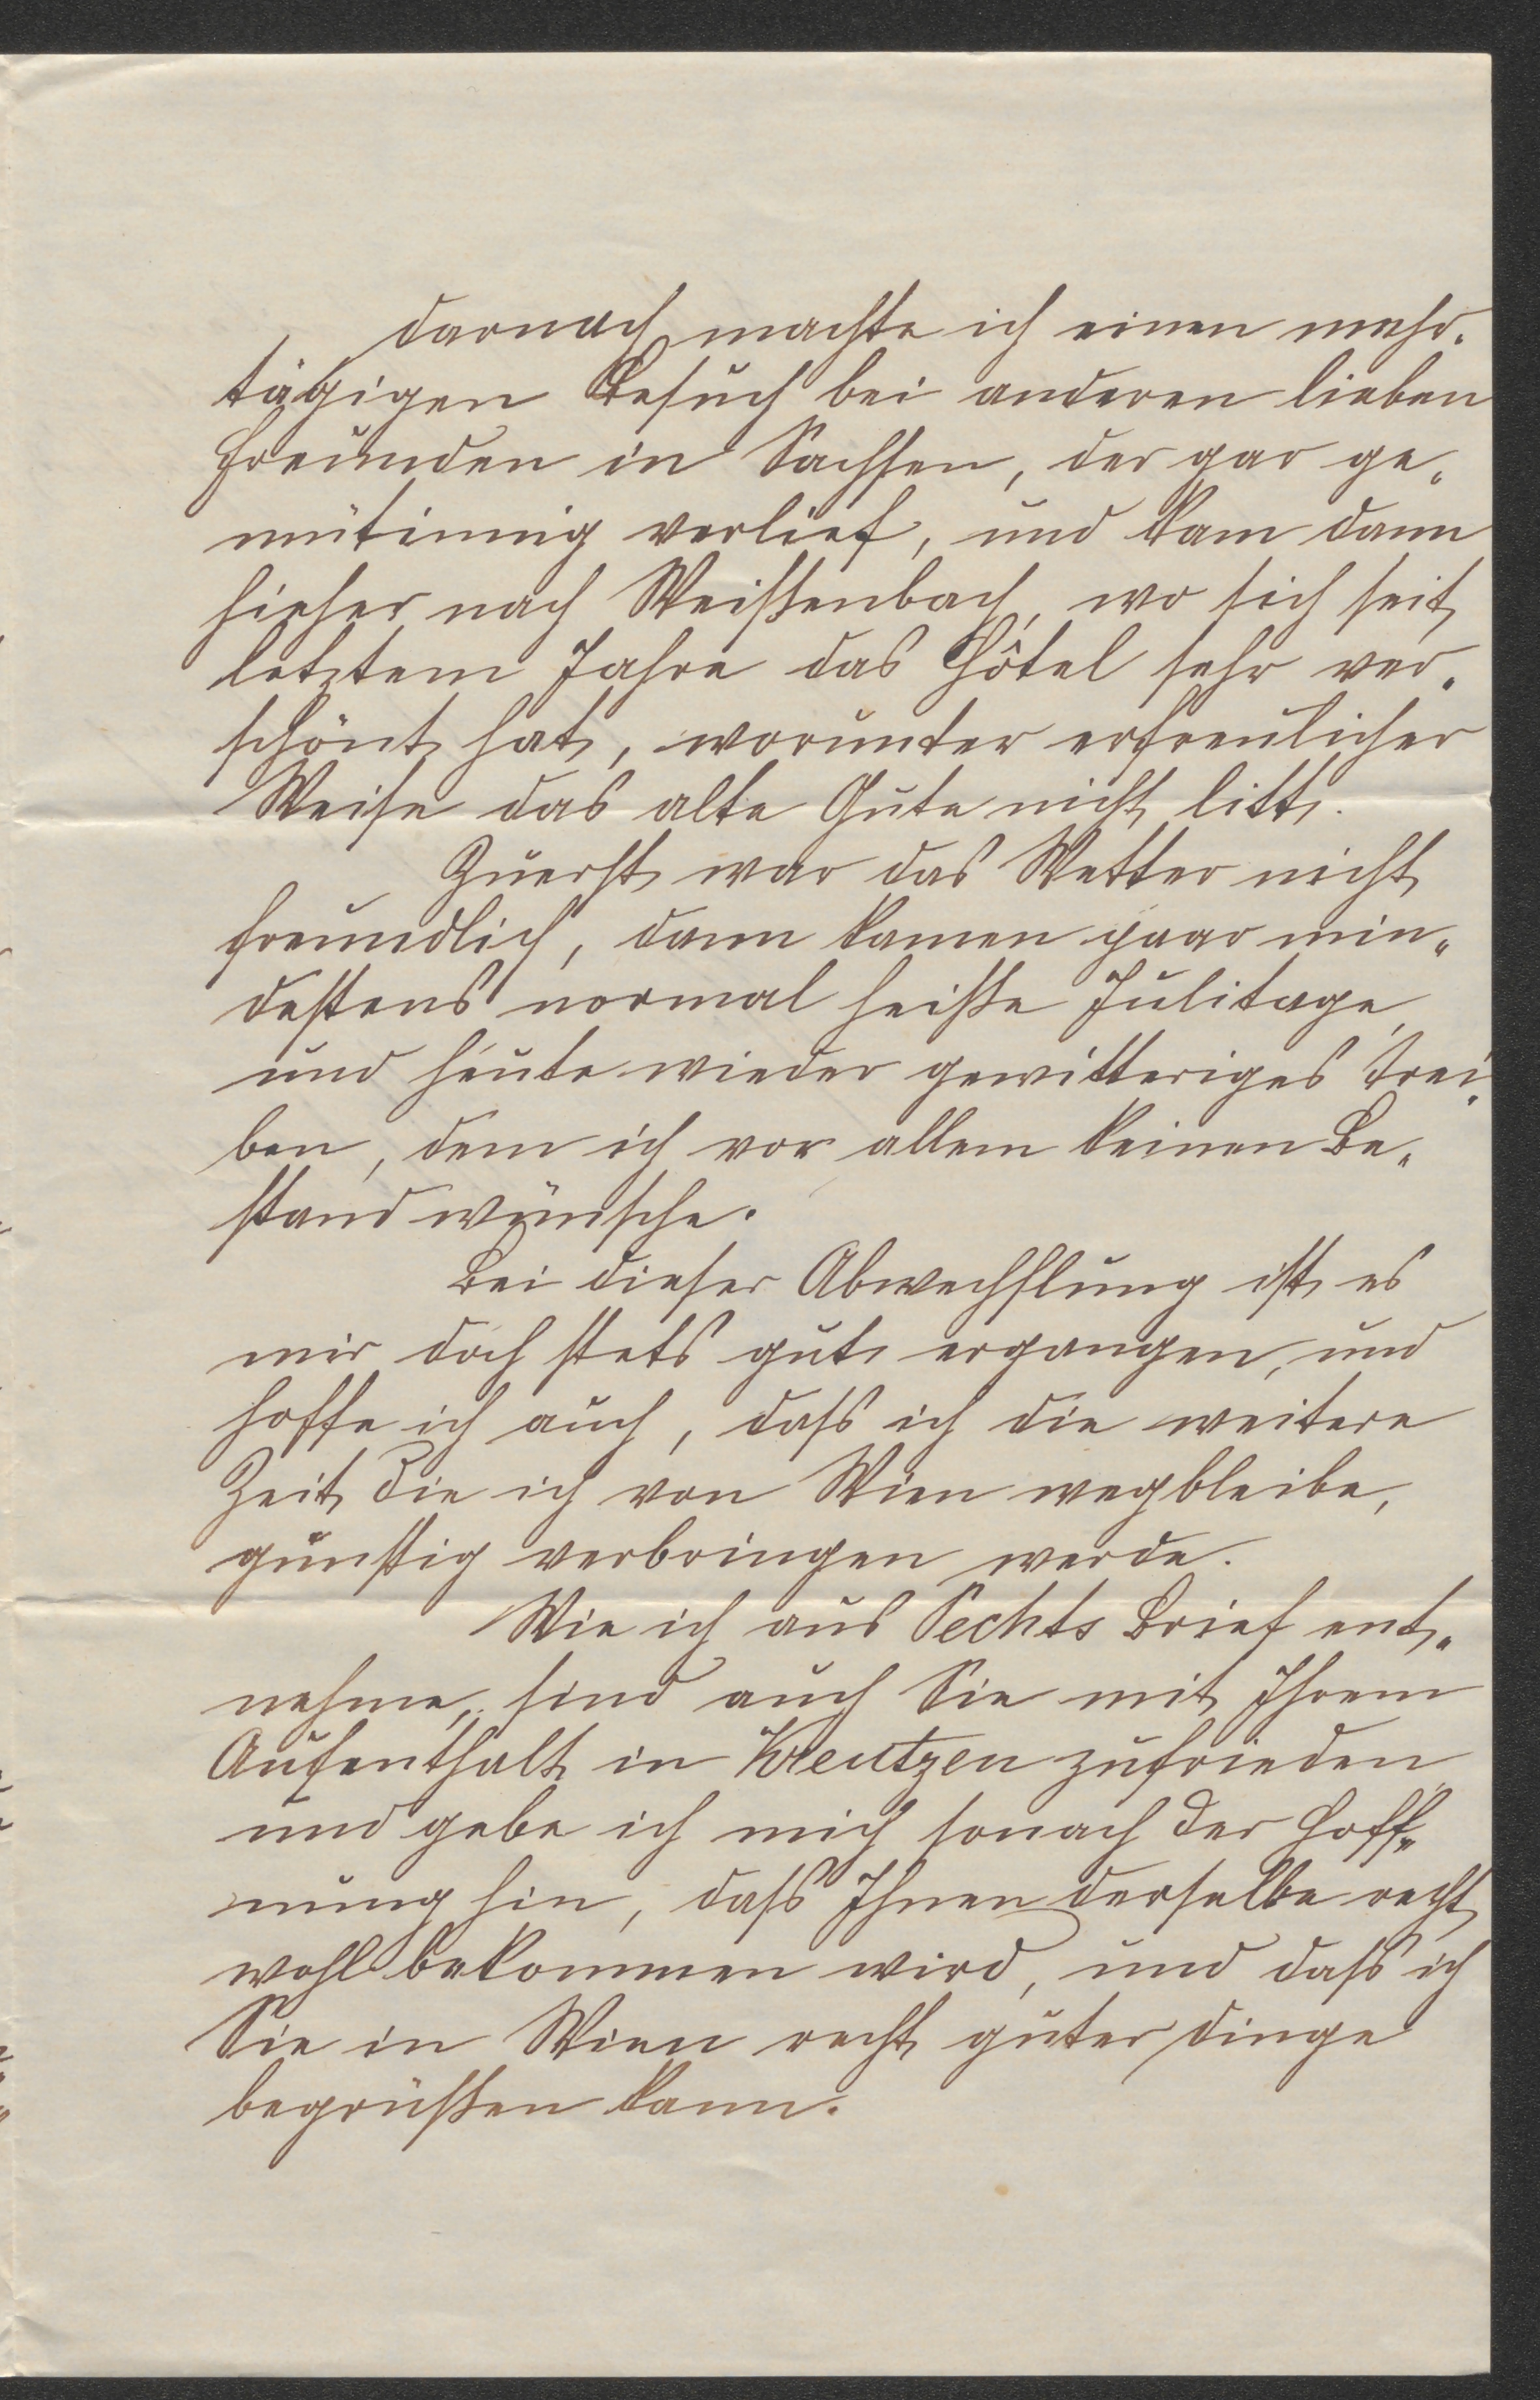 darnach machte ich einen mehr-
tägigen Besuch bei anderen lieben
Freunden in Sachsen, der gar ge-
mütinnig verlief, und kam dann
hieher nach Weißenbach, wo sich seit
letztem Jahre das Hôtel sehr ver-
schönt hat, worunter erfreulicher
Weise das alte Gute nicht litt.
Zuerst war das Wetter nicht
freundlich, dann kamen paar min-
destens normal heiße Julitage,
und heute wieder gewitteriges Trei-
ben, dem ich vor allem keinen Be-
stand wünsche.
Bei dieser Abwechslung ist es
mir doch stets gut ergangen, und
hoffe ich auch, dass ich die weitere
Zeit die ich von Wien wegbleibe,
günstig verbringen werde.
Wie ich aus Pechts Brief ent-
nehme, sind auch Sie mit Ihrem
Aufenthalt in Kreutzen zufrieden
und gebe ich mich sonach der Hoff-
nung hin, dass Ihnen derselbe recht
wohl bekommen wird, und dass ich
Sie in Wien recht guter Dinge
begrüßen kann.